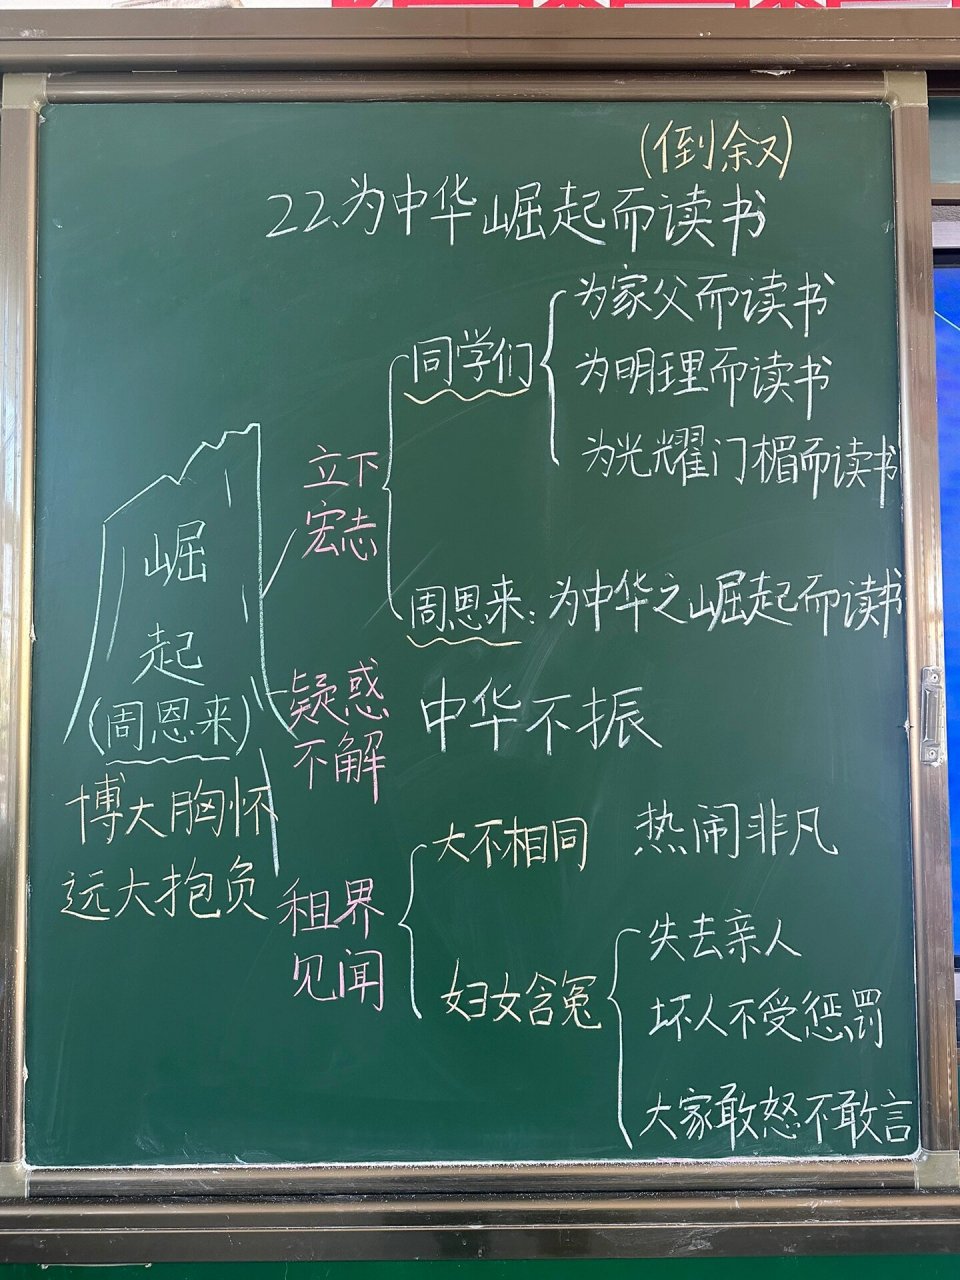 (倒叙)
22.为中华崛起而读书
崛
起
(周恩来)
博大胸怀
远大抱负
立下
宏志
同学们
为家父而读书
为明理而读书
为光耀门楣而读书
周恩来：为中华之崛起而读书
疑惑
不解
中华不振
租界
见闻
大不相同 热闹非凡
妇女含冤
失去亲人
坏人不受惩罚
大家敢怒不敢言